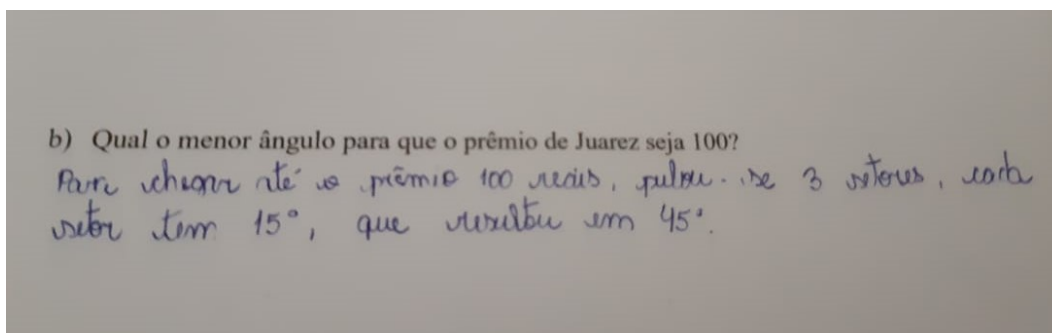 b) Qual o menor ângulo para que o prêmio de Juarez seja 100?
Para chegar até o prêmio 100 reais, pulou-se 3 setores, cada
setor tem 15°, que resultou em 45°.